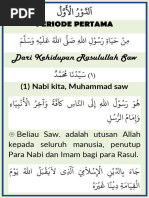 اَلدَّوْرُ الْأَوَّلُ
PERIODE PERTAMA
مِنْ حَيَاةِ رَسُوْلِ اللهِ صَلَّى اللهُ عَلَيْهِ وَسَلَّمَ
Dari Kehidupan Rasulullah Saw
(١) سَيِّدُنَا مُحَمَّدٌ
(1) Nabi kita, Muhammad saw
هُوَ رَسُوْلُ اللهِ إِلَى النَّاسِ كَافَّةً وَهُوَ آخِرُ الْأَنْبِيَاءِ
وَإِمَامُ الرُّسُلِ
Beliau Saw. adalah utusan Allah
kepada seluruh manusia, penutup
Para Nabi dan Imam bagi para Rasul.
جَاءَ بِالدِّيْنِ الْإِسْلَامِيِّ